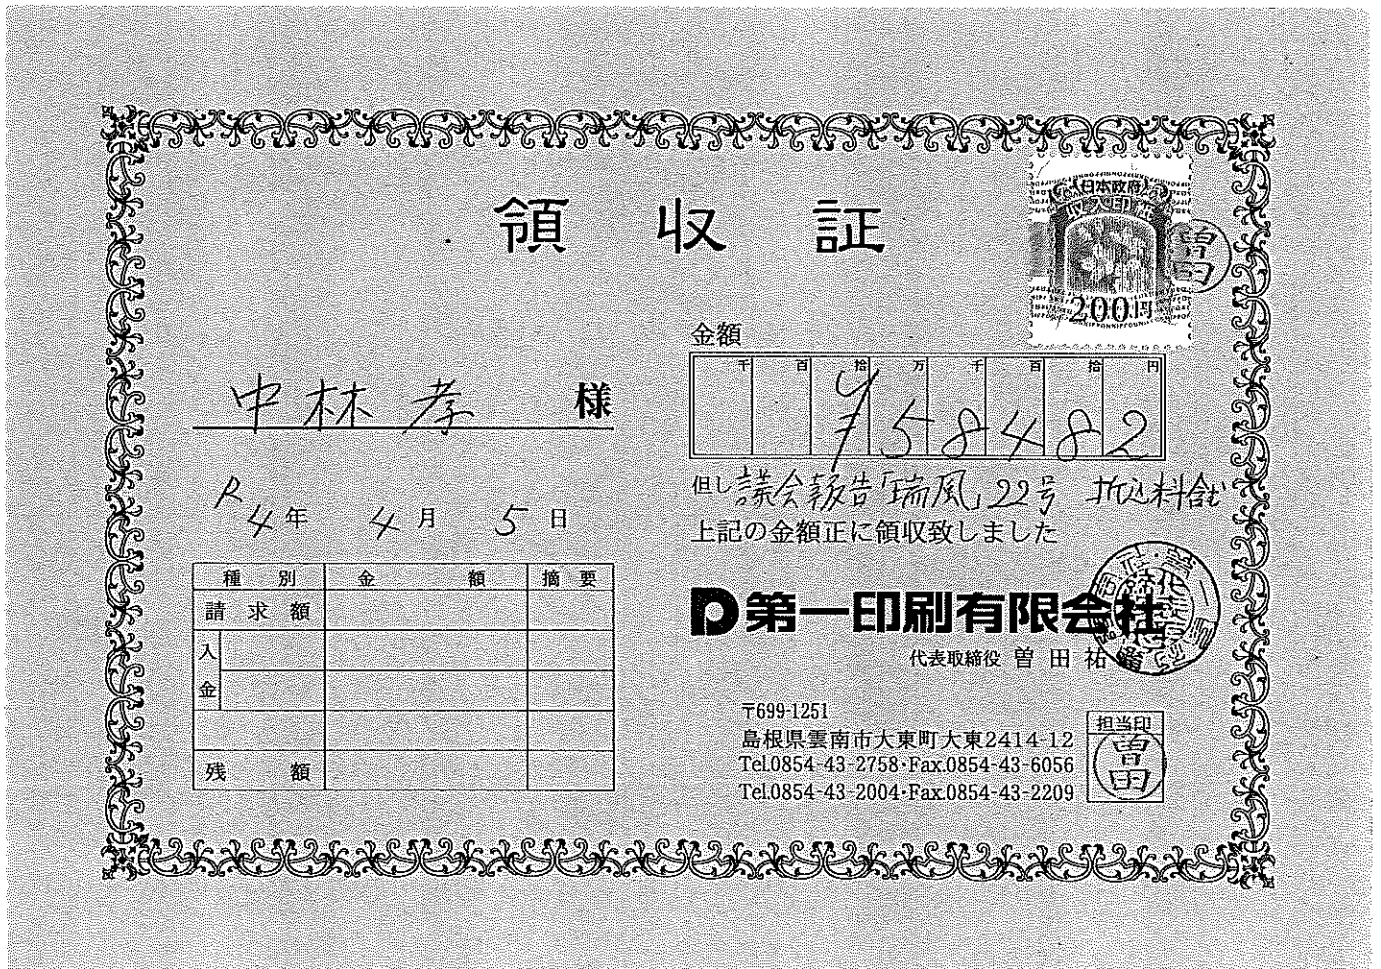 領収証
日本政府
収入印紙
200円
曽田
中林 孝 様
R4年 4月 5日
金額
千 百 拾 万 千 百 拾 円
¥58482
但し 議会報告「瑞風」22号 折込料含む
上記の金額正に領収致しました
種別 金額 摘要
請求額
入金
残額
第一印刷有限会社
代表取締役 曽田祐
〒699-1251
島根県雲南市大東町大東2414-12
Tel.0854-43-2758・Fax.0854-43-6056
Tel.0854-43-2004・Fax.0854-43-2209
担当印
曽田